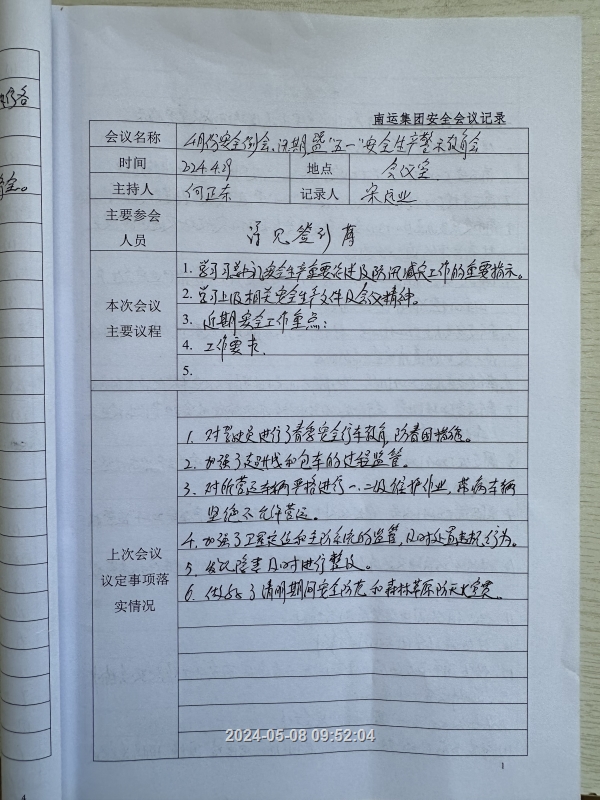 南运集团安全会议记录
会议名称 4月份安全例会、汛期暨"五一"安全生产警示教育会
时间 2024.4.29 地点 会议室
主持人 何正东 记录人
主要参会人员 详见签到簿
本次会议主要议程
1. 学习习总书记安全生产重要论述及防汛减灾工作的重要指示。
2. 学习上级相关安全生产文件及会议精神。
3. 近期安全工作重点:
4. 工作要求.
5.
上次会议议定事项落实情况
1. 对驾驶员进行了春季安全行车教育,防春困措施。
2. 加强了支班线和包车的过程监管。
3. 对所营运车辆严格进行一、二级维护作业,带病车辆
坚决不允许营运。
4. 加强了卫星定位和主防系统的监管,及时处置违规行为。
5. 发现隐患及时进行整改。
6. 做好了清明期间安全防范和森林草原防灭火宣贯。
2024-05-08 09:52:04
1
4